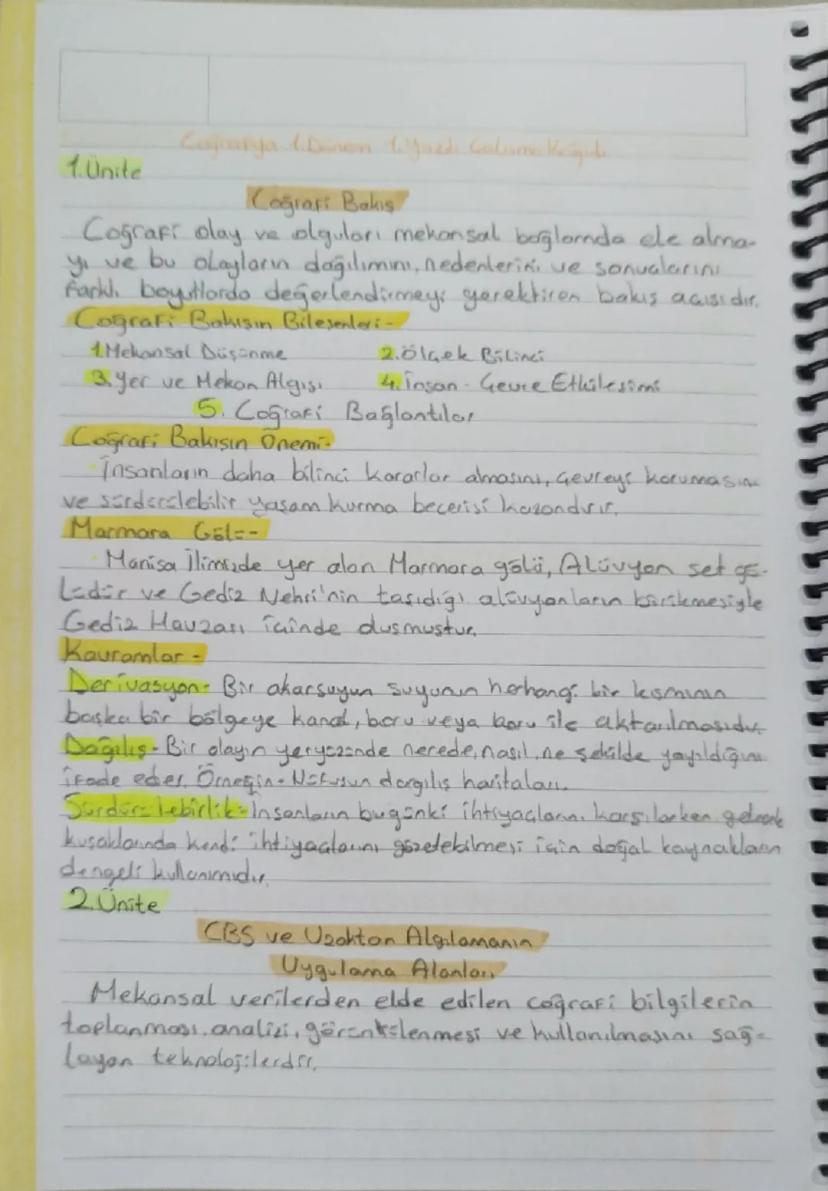 Coğrafya 1.Dönem 1.Yazılı Çalışma Kağıdı
1.Ünite
Coğrafi Bakış
Coğrafi olay ve olguları mekansal bağlamda ele alma-
yı ve bu olayların dağılımını, nedenlerini ve sonuçlarını
farklı boyutlarda değerlendirmeyi gerektiren bakış açısıdır.
Coğrafi Bakışın Bileşenleri-
1.Mekansal Düşünme 2.Ölçek Bilinci
3.Yer ve Mekan Algısı 4.İnsan-Çevre Etkileşimi
5. Coğrafi Bağlantılar
Coğrafi Bakışın Önemi-
İnsanların daha bilinçi kararlar almasını, çevreyi korumasını
ve sürdürülebilir yaşam kurma becerisi kazandırır.
Marmara Gölü-
Manisa İlimizde yer alan Marmara gölü, Alüvyon set gö-
lüdür ve Gediz Nehri'nin taşıdığı alüvyonların birikmesiyle
Gediz Havzası içinde oluşmuştur.
Kavramlar-
Derivasyon- Bir akarsuyun suyunun herhangi bir kısmının
başka bir bölgeye kanal, boru veya boru ile aktarılmasıdır.
Dağılış- Bir olayın yeryüzünde nerede, nasıl, ne şekilde yayıldığını
ifade eder. Örneğin- Nüfusun dargılış haritaları.
Sürdürülebirlik- İnsanların bugünkü ihtiyaçlarını karşılarken gelecek
kuşaklarında kendi ihtiyaçlarını gözetebilmesi için doğal kaynakların
dengeli kullanımıdır.
2.Ünite
CBS ve Uzaktan Algılamanın
Uygulama Alanları
Mekansal verilerden elde edilen coğrafi bilgilerin
toplanması, analizi, görüntülenmesi ve kullanılmasını sağ-
layan teknolojilerdir.